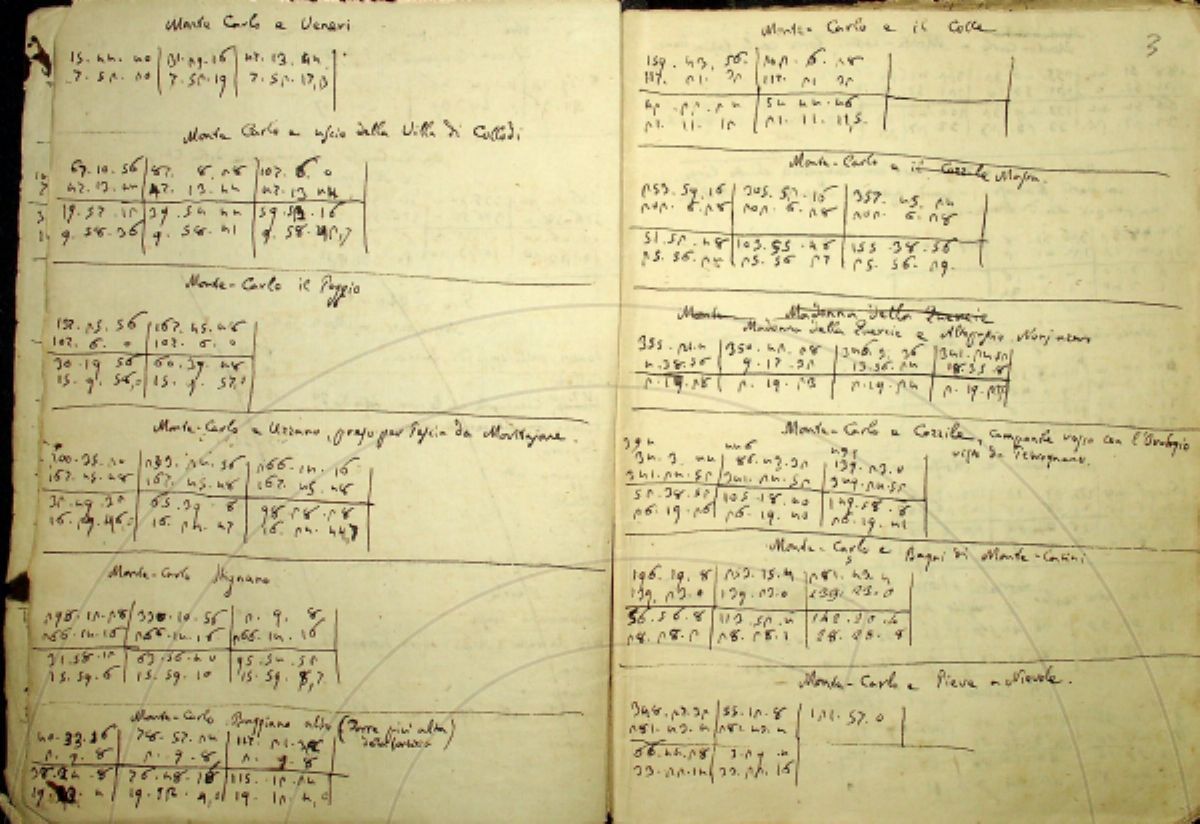 Monte Carlo e Veneri
15.44.40 31.29.16 47.13.44
7.52.20 7.52.19 7.52.17,3
Monte Carlo e uscio della Villa di Collodi
67.10.56 87. 8.28 107.6.0
47.13.44 47.13.44 47.13.44
19.57.12 39.54.44 59.52.16
9.58.36 9.58.41 9.58.42,7
Monte-Carlo il Poggio
137.25.56 167.45.48
107.6.0 107.6.0
30.19 56 60.39.48
15.9. 15.9.57,0
Monte-Carlo e Uzzano, preso per Pescia da
200.35.20 233.24.56 266.14.16
167.45.48 167.45.48 167.45.48
32.49.32 65.39.8 98.28.28
16.24.46,0 16.24.47 16.24.44,7
Monte-Carlo Stignano
298.12.28 330.10.56 2.9.8
266.14.16 266.14.16 266.14.16
31.58.12 63.56.40 95.54.52
15.59.6 15.59.10 15.59.8,7
Monte-Carlo Buggiano alto (Torre più alta
40.33.16 78.57.24 117.21.32
2.9.8 2.9.8 2.9.8
38.24.8 76.48.16 115.12.24
19. 4 19.12.4,0 19.12.4,0
3
Monte-Carlo e il Colle
159.43.56 202.6.28
117.21.32 117.21.32
42.22.24 84.44.46
21.11.12 21.11.11,5
Monte-Carlo e il Cozzile Massa.
253.59.16 305.52.16 357.45.24
202.6.28 202.6.28 202.6.28
51.52.48 155.38.56
25.56.24 25.56.27 25.56.29.
Monte Madonna della Querce
Madonna della Querce e Altopascio
355.21.4 350.42.28 346.3.36 341.24.52
4.38.56 9.17.32 13.56.24 18.35.8
2.19.28 2.19.23 2.19.24 2.19.23
Monte-Carlo e Cozzile, campanile rosso con l'Orologio
visto da
394 446 499
34.3.44 86.43.32 139.23.0
341.24.52 341.24.52
52.38.52 105.18.40 149.58.8
26.19.26 26.19.40 26.19.41
Monte-Carlo e Bagni di Monte-Catini
196.19.8 253.15.4 281.43.4
139.23.0 139.23.0
56.56.8 113.52.4
28.28.
Monte-Carlo e Pieve a Nievole.
348.27.32 55.12.8 121.57.0
281.43.4 281.43.4
66.44.28 3.29.4
33.22.14 33.22.16